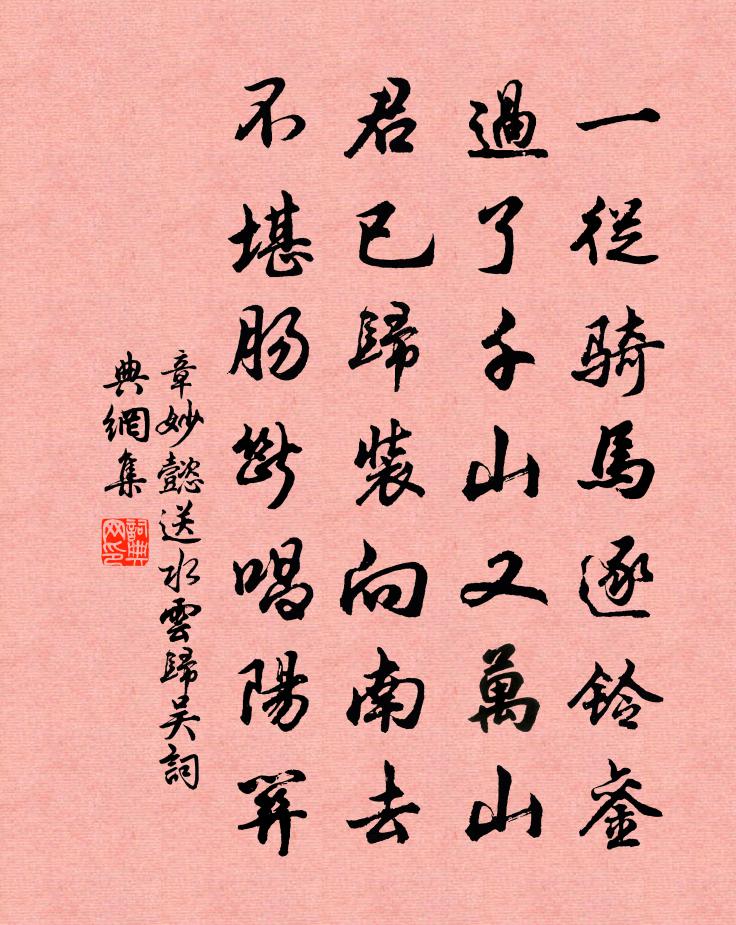 一從騎馬逐鈴銮
過了千山又萬山
君已歸裝向南去
不堪腸斷唱陽關
章妙懿送水雲歸吴詞
典網集
詞典
网印